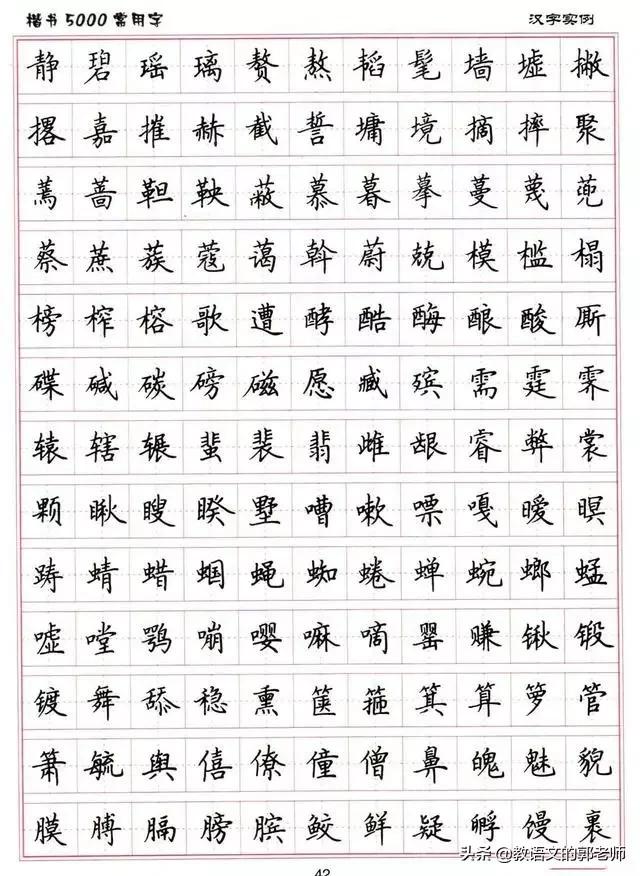 楷书5000常用字 汉字实例
静碧瑶璃赘熬韬髦墙墟撇
撂嘉摧赫截誓墉境摘摔聚
蔫蔷靼鞅蔽慕暮摹蔓蔑蔸
蔡蔗蔟蔻蔼斡蔚兢模槛榻
榜榨榕歌遭酵酷酶酿酸厮
碟碱碳磅磁愿臧殡需霆霁
辕辖辗蜚裴翡雌龈睿弊裳
颗瞅瞍睽墅嘈嗽嘌嘎暧暝
踌蜻蜡蝈蝇蜘蜷蝉蜿螂蜢
嘘嘡鹗嘣嘤嘛嘀罂赚锹锻
镀舞舔稳熏箧箍箕算箩管
箫毓舆僖僚僮僧鼻魄魅貌
膜膊膈膀膑鲛鲜疑孵馒裹
42
头条 @教语文的郭老师